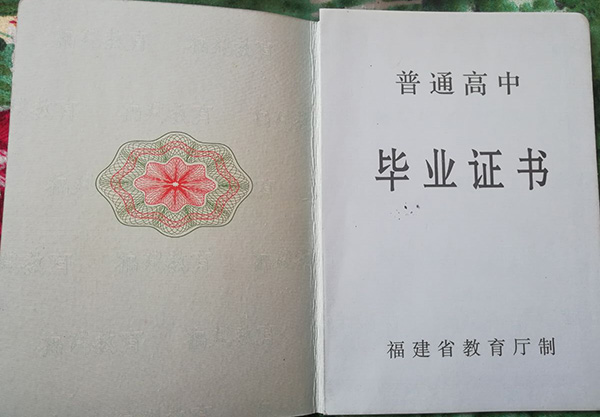 普通高中
毕业证书
福建省教育厅制